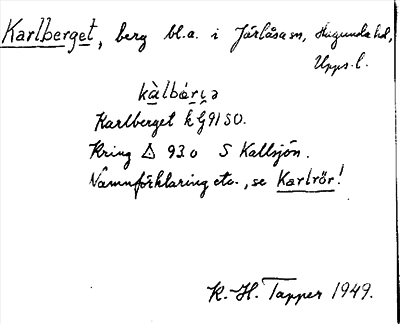 Karlberget, berg bl.a. i Järlåsa sn, Hagunda hd,
Upps. l.
kàlbárịə
Karlberget k G9150.
Kring △ 93.0 S Kallsjön.
Namnförklaring etc., se Karlrör!
K.-H. Tapper 1949.